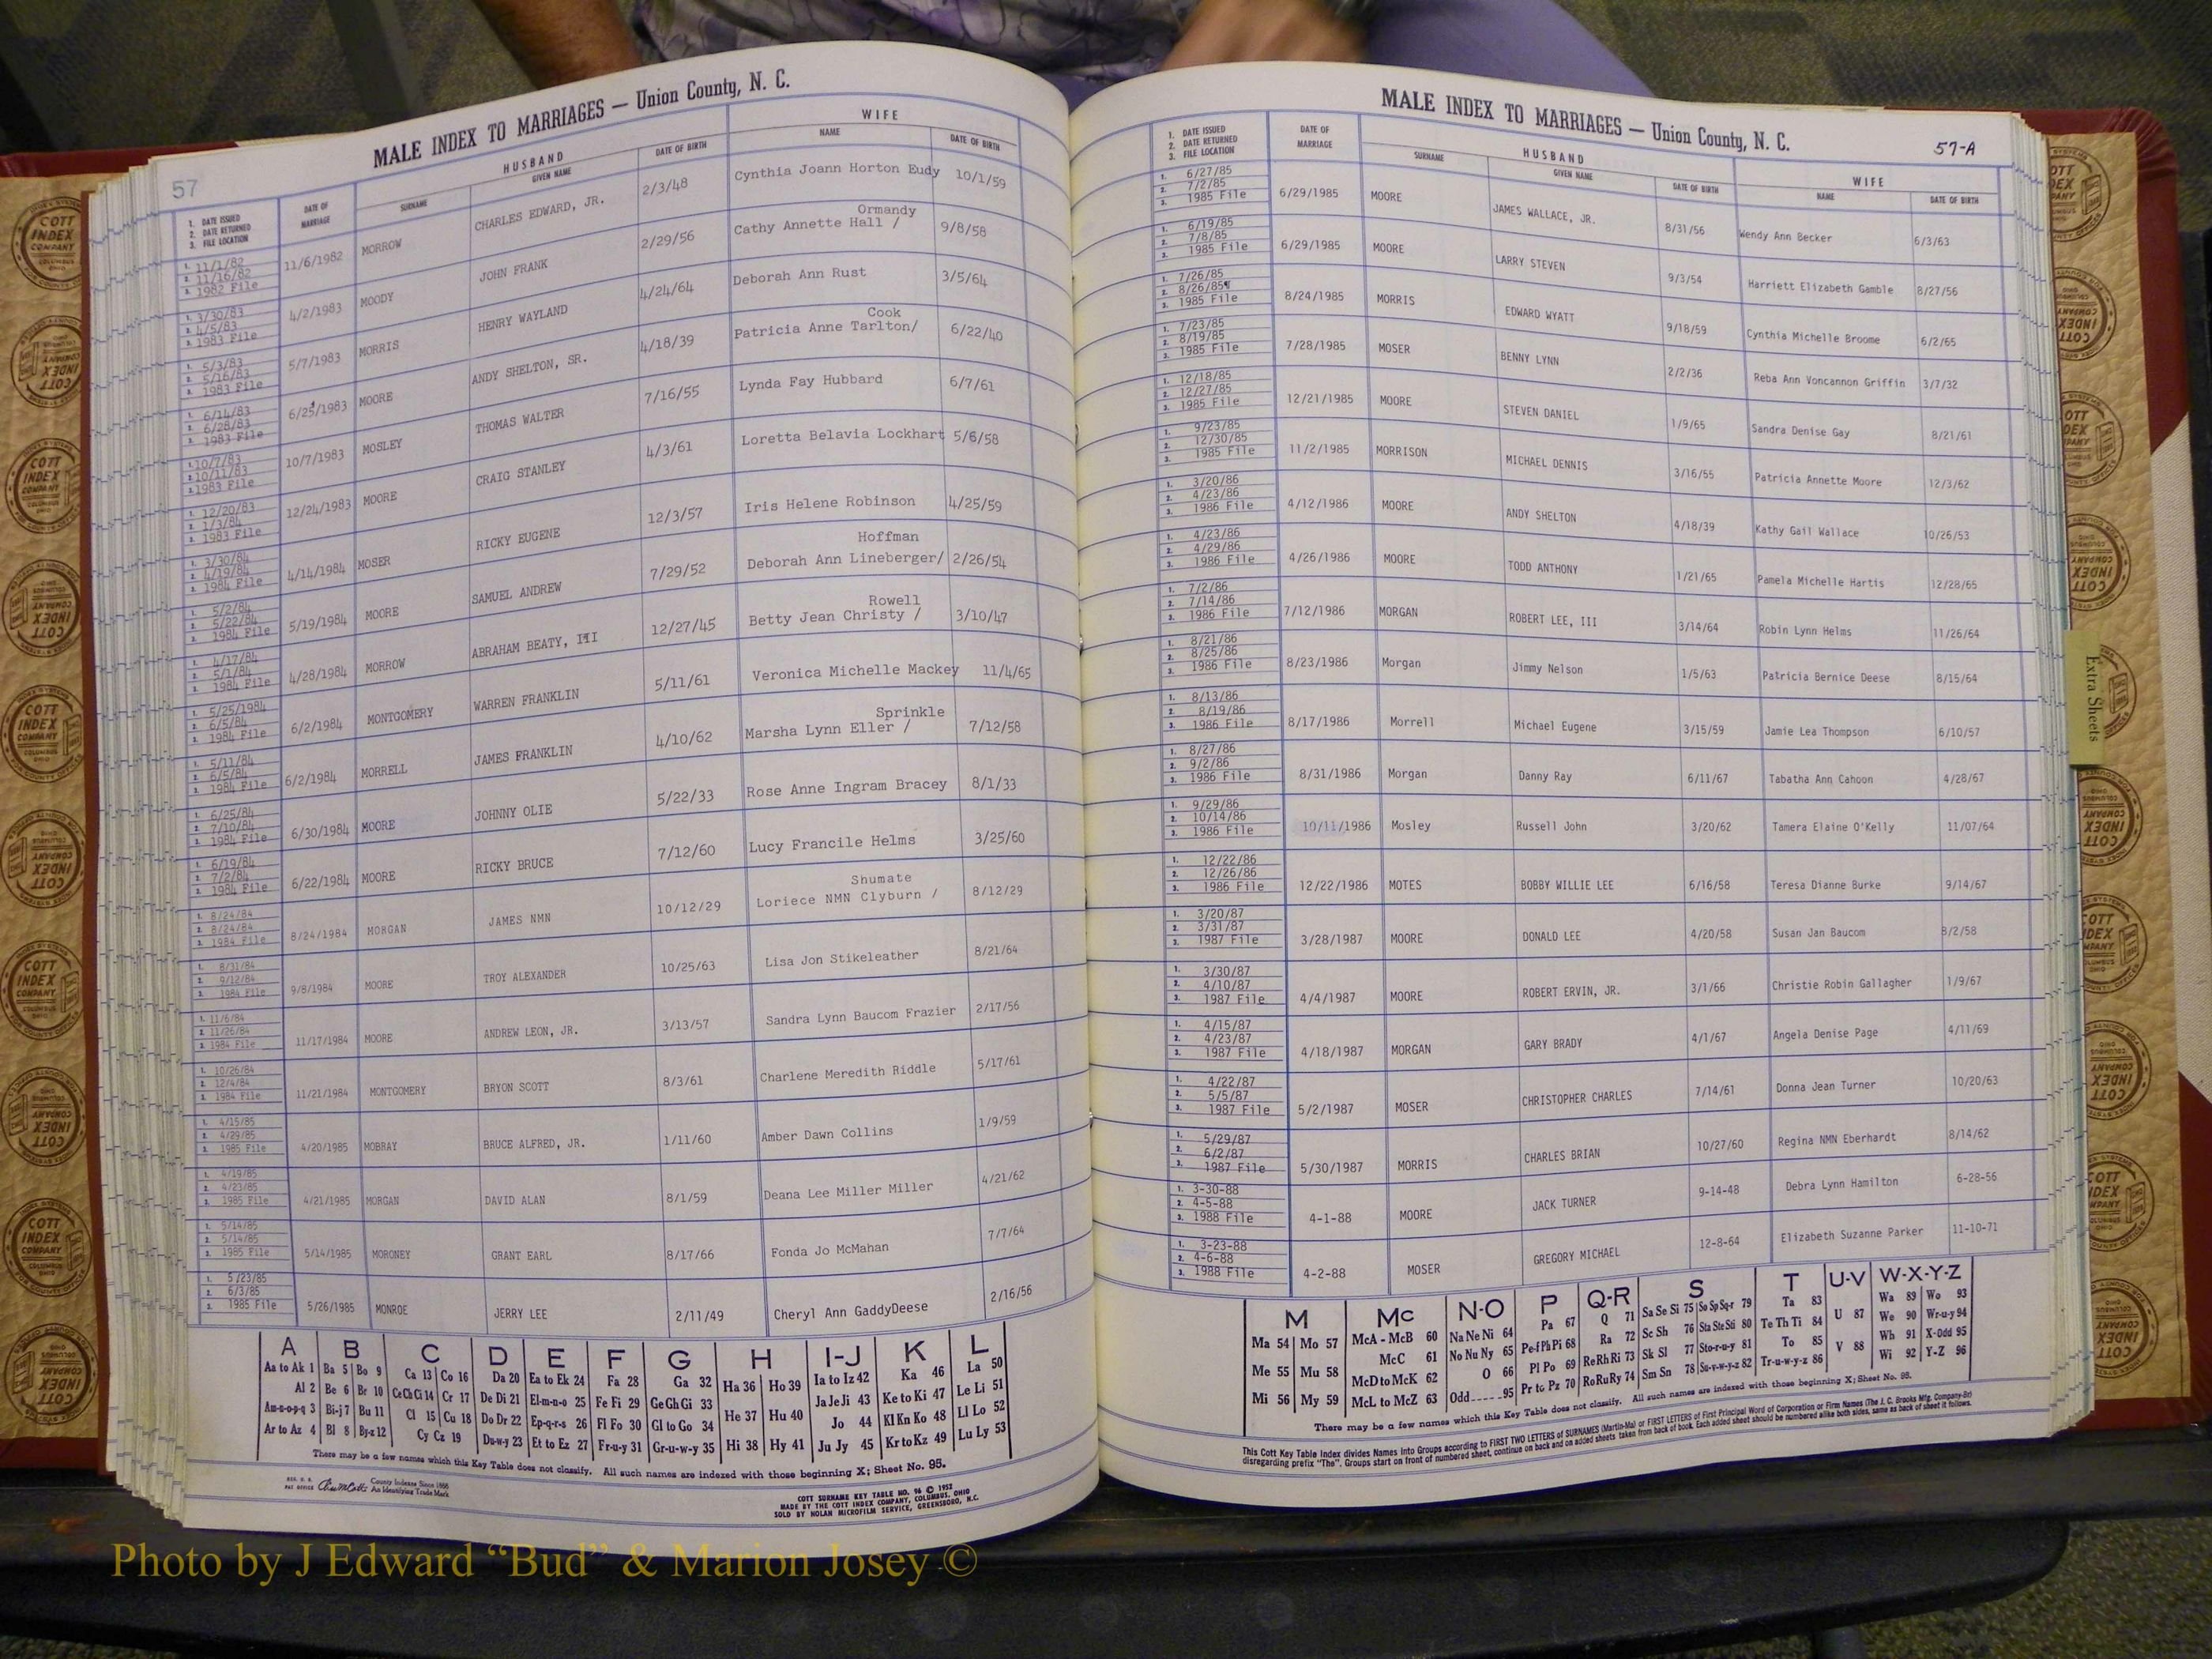 MALE INDEX TO MARRIAGES — Union County, N. C.
57
1. DATE ISSUED 2. DATE RETURNED 3. FILE LOCATION
DATE OF MARRIAGE
HUSBAND
SURNAME GIVEN NAME DATE OF BIRTH
WIFE
NAME DATE OF BIRTH
1. 11/1/82 2. 11/16/82 3. 1982 File 11/6/1982 MORROW CHARLES EDWARD, JR. 2/3/48 Cynthia Joann Horton Eudy 10/1/59
1. 3/30/83 2. 4/5/83 3. 1983 File 4/2/1983 MOODY JOHN FRANK 2/29/56 Cathy Annette Hall / Ormandy 9/8/58
1. 5/3/83 2. 5/16/83 3. 1983 File 5/7/1983 MORRIS HENRY WAYLAND 4/24/64 Deborah Ann Rust 3/5/64
1. 6/14/83 2. 6/28/83 3. 1983 File 6/25/1983 MOORE ANDY SHELTON, SR. 4/18/39 Patricia Anne Tarlton/ Cook 6/22/40
1. 10/7/83 2. 10/11/83 3. 1983 File 10/7/1983 MOSLEY THOMAS WALTER 7/16/55 Lynda Fay Hubbard 6/7/61
1. 12/20/83 2. 1/3/84 3. 1983 File 12/24/1983 MOORE CRAIG STANLEY 4/3/61 Loretta Belavia Lockhart 5/6/58
1. 3/30/84 2. 4/19/84 3. 1984 File 4/14/1984 MOSER RICKY EUGENE 12/3/57 Iris Helene Robinson 4/25/59
1. 5/2/84 2. 5/22/84 3. 1984 File 5/19/1984 MOORE SAMUEL ANDREW 7/29/52 Deborah Ann Lineberger/ Hoffman 2/26/54
1. 4/17/84 2. 5/1/84 3. 1984 File 4/28/1984 MORROW ABRAHAM BEATY, III 12/27/45 Betty Jean Christy / Rowell 3/10/47
1. 5/25/1984 2. 6/5/84 3. 1984 File 6/2/1984 MONTGOMERY WARREN FRANKLIN 5/11/61 Veronica Michelle Mackey 11/4/65
1. 5/11/84 2. 6/5/84 3. 1984 File 6/2/1984 MORRELL JAMES FRANKLIN 4/10/62 Marsha Lynn Eller / Sprinkle 7/12/58
1. 6/25/84 2. 7/10/84 3. 1984 File 6/30/1984 MOORE JOHNNY OLIE 5/22/33 Rose Anne Ingram Bracey 8/1/33
1. 6/19/84 2. 7/2/84 3. 1984 File 6/22/1984 MOORE RICKY BRUCE 7/12/60 Lucy Francile Helms 3/25/60
1. 8/24/84 2. 8/24/84 3. 1984 File 8/24/1984 MORGAN JAMES NMN 10/12/29 Loriece NMN Clyburn / Shumate 8/12/29
1. 8/31/84 2. 9/12/84 3. 1984 File 9/8/1984 MOORE TROY ALEXANDER 10/25/63 Lisa Jon Stikeleather 8/21/64
1. 11/6/84 2. 11/26/84 3. 1984 File 11/17/1984 MOORE ANDREW LEON, JR. 3/13/57 Sandra Lynn Baucom Frazier 2/17/56
1. 10/26/84 2. 12/4/84 3. 1984 File 11/21/1984 MONTGOMERY BRYON SCOTT 8/3/61 Charlene Meredith Riddle 5/17/61
1. 4/15/85 2. 4/29/85 3. 1985 File 4/20/1985 MOBRAY BRUCE ALFRED, JR. 1/11/60 Amber Dawn Collins 1/9/59
1. 4/19/85 2. 4/23/85 3. 1985 File 4/21/1985 MORGAN DAVID ALAN 8/1/59 Deana Lee Miller Miller 4/21/62
1. 5/14/85 2. 5/14/85 3. 1985 File 5/14/1985 MORONEY GRANT EARL 8/17/66 Fonda Jo McMahan 7/7/64
1. 5/23/85 2. 6/3/85 3. 1985 File 5/26/1985 MONROE JERRY LEE 2/11/49 Cheryl Ann GaddyDeese 2/16/56
A B C D E F G H I-J K L
Aa to Ak 1 Ba 5 Bo 9 Ca 13 Co 16 Da 20 Ea to Ek 24 Fa 28 Ga 32 Ha 36 Ho 39 Ia to Iz 42 Ka 46 La 50
Al 2 Be 6 Br 10 Ce Ch Ci 14 Cr 17 De Di 21 El-m-n-o 25 Fe Fi 29 Ge Gh Gi 33 He 37 Hu 40 Ja Je Ji 43 Ke to Ki 47 Le Li 51
Am-n-o-p-q 3 Bi-j 7 Bu 11 Cl 15 Cu 18 Do Dr 22 Ep-q-r-s 26 Fl Fo 30 Gl to Go 34 Hi 38 Hy 41 Jo 44 Kl Kn Ko 48 Ll Lo 52
Ar to Az 4 Bl 8 By-z 12 Cy Cz 19 Du-w-y 23 Et to Ez 27 Fr-u-y 31 Gr-u-w-y 35 Ju Jy 45 Kr to Kz 49 Lu Ly 53
There may be a few names which this Key Table does not classify. All such names are indexed with those beginning X; Sheet No. 95.
County Indexes Since 1888
An Identifying Trade Mark
COTT SURNAME KEY TABLE NO. 96 © 1952
MADE BY THE COTT INDEX COMPANY, COLUMBUS, OHIO
SOLD BY NOLAN MICROFILM SERVICE, GREENSBORO, N.C.
MALE INDEX TO MARRIAGES — Union County, N. C.
57-A
1. DATE ISSUED 2. DATE RETURNED 3. FILE LOCATION
DATE OF MARRIAGE
HUSBAND
SURNAME GIVEN NAME DATE OF BIRTH
WIFE
NAME DATE OF BIRTH
1. 6/27/85 2. 7/2/85 3. 1985 File 6/29/1985 MOORE JAMES WALLACE, JR. 8/31/56 Wendy Ann Becker 6/3/63
1. 6/19/85 2. 7/8/85 3. 1985 File 6/29/1985 MOORE LARRY STEVEN 9/3/54 Harriett Elizabeth Gamble 8/27/56
1. 7/26/85 2. 8/26/85 3. 1985 File 8/24/1985 MORRIS EDWARD WYATT 9/18/59 Cynthia Michelle Broome 6/2/65
1. 7/23/85 2. 8/19/85 3. 1985 File 7/28/1985 MOSER BENNY LYNN 2/2/36 Reba Ann Voncannon Griffin 3/7/32
1. 12/18/85 2. 12/27/85 3. 1985 File 12/21/1985 MOORE STEVEN DANIEL 1/9/65 Sandra Denise Gay 8/21/61
1. 9/23/85 2. 12/30/85 3. 1985 File 11/2/1985 MORRISON MICHAEL DENNIS 3/16/55 Patricia Annette Moore 12/3/62
1. 3/20/86 2. 4/23/86 3. 1986 File 4/12/1986 MOORE ANDY SHELTON 4/18/39 Kathy Gail Wallace 10/26/53
1. 4/23/86 2. 4/29/86 3. 1986 File 4/26/1986 MOORE TODD ANTHONY 1/21/65 Pamela Michelle Hartis 12/28/65
1. 7/2/86 2. 7/14/86 3. 1986 File 7/12/1986 MORGAN ROBERT LEE, III 3/14/64 Robin Lynn Helms 11/26/64
1. 8/21/86 2. 8/25/86 3. 1986 File 8/23/1986 Morgan Jimmy Nelson 1/5/63 Patricia Bernice Deese 8/15/64
1. 8/13/86 2. 8/19/86 3. 1986 File 8/17/1986 Morrell Michael Eugene 3/15/59 Jamie Lea Thompson 6/10/57
1. 8/27/86 2. 9/2/86 3. 1986 File 8/31/1986 Morgan Danny Ray 6/11/67 Tabatha Ann Cahoon 4/28/67
1. 9/29/86 2. 10/14/86 3. 1986 File 10/11/1986 Mosley Russell John 3/20/62 Tamera Elaine O'Kelly 11/07/64
1. 12/22/86 2. 12/26/86 3. 1986 File 12/22/1986 MOTES BOBBY WILLIE LEE 6/16/58 Teresa Dianne Burke 9/14/67
1. 3/20/87 2. 3/31/87 3. 1987 File 3/28/1987 MOORE DONALD LEE 4/20/58 Susan Jan Baucom 8/2/58
1. 3/30/87 2. 4/10/87 3. 1987 File 4/4/1987 MOORE ROBERT ERVIN, JR. 3/1/66 Christie Robin Gallagher 1/9/67
1. 4/15/87 2. 4/23/87 3. 1987 File 4/18/1987 MORGAN GARY BRADY 4/1/67 Angela Denise Page 4/11/69
1. 4/22/87 2. 5/5/87 3. 1987 File 5/2/1987 MOSER CHRISTOPHER CHARLES 7/14/61 Donna Jean Turner 10/20/63
1. 5/29/87 2. 6/2/87 3. 1987 File 5/30/1987 MORRIS CHARLES BRIAN 10/27/60 Regina NMN Eberhardt 8/14/62
1. 3-30-88 2. 4-5-88 3. 1988 File 4-1-88 MOORE JACK TURNER 9-14-48 Debra Lynn Hamilton 6-28-56
1. 3-23-88 2. 4-6-88 3. 1988 File 4-2-88 MOSER GREGORY MICHAEL 12-8-64 Elizabeth Suzanne Parker 11-10-71
M Mc N-O P Q-R S T U-V W-X-Y-Z
Ma 54 Mo 57 McA - McB 60 Na Ne Ni 64 Pa 67 Q 71 Sa Se Si 75 So Sp Sq-r 79 Ta 83 U 87 Wa 89 Wo 93
Me 55 Mu 58 McC 61 No Nu Ny 65 Pe-f Ph Pi 68 Ra 72 Sc Sh 76 Sta Ste Sti 80 Te Th Ti 84 V 88 We 90 Wr-u-y 94
Mi 56 My 59 McD to McK 62 O 66 Pl Po 69 Re Rh Ri 73 Sk Sl 77 Sto-r-u-y 81 To 85 Wh 91 X-Odd 95
McL to McZ 63 Odd 95 Pr to Pz 70 Ro Ru Ry 74 Sm Sn 78 Su-v-w-y-z 82 Tr-u-w-y-z 86 Wi 92 Y-Z 96
There may be a few names which this Key Table does not classify. All such names are indexed with those beginning X; Sheet No. 95.
This Cott Key Table Index divides Names into Groups according to FIRST TWO LETTERS of SURNAMES (Martin-Ma) or FIRST LETTERS of First Principal Word of Corporation or Firm Names (The J. C. Brooks Mfg. Company-Br)
disregarding prefix "The". Groups start on front of numbered sheet, continue on back and on added sheets taken from back of book. Each added sheet should be numbered alike both sides, same as back of sheet it follows.
Extra Sheets
COTT INDEX COMPANY COLUMBUS OHIO
Photo by J Edward “Bud” & Marion Josey ©